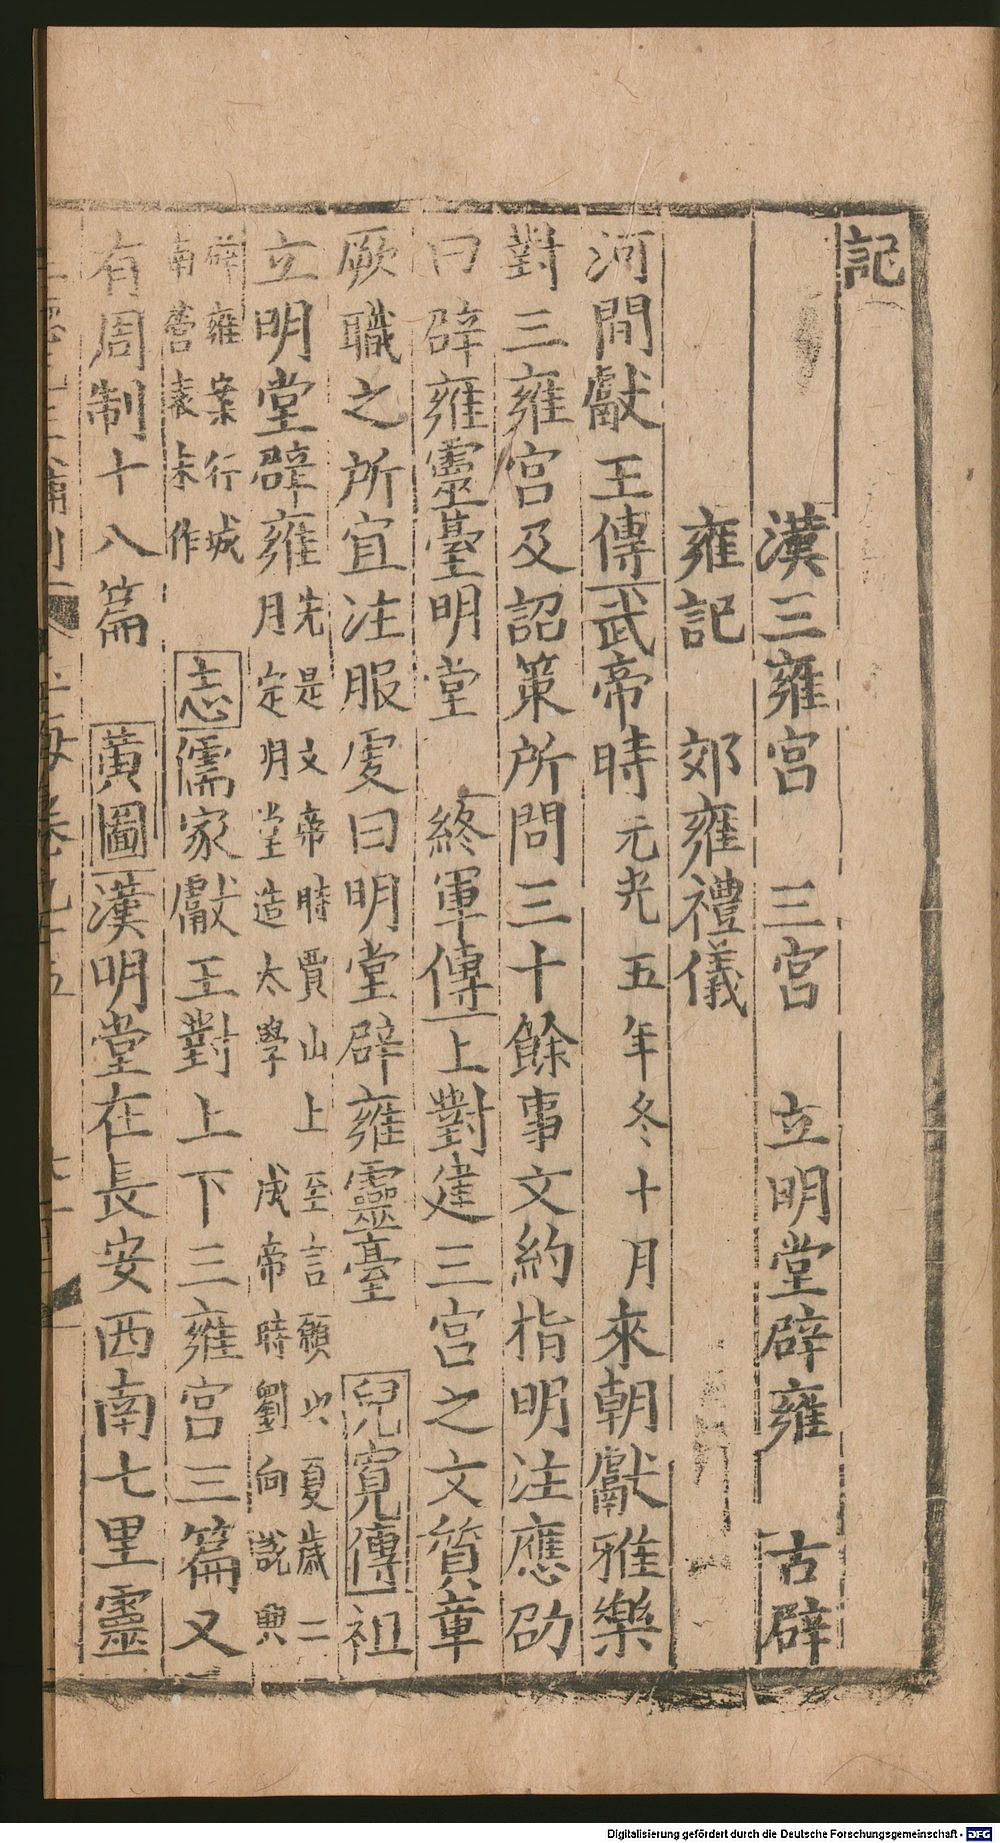 記
漢三雍宮　三宮　立明堂辟雍　古辟
雍記　郊雍禮儀
河間獻王傳武帝時元光五年冬十月來朝獻雅樂
對三雍宮及詔策所問三十餘事文約指明注應劭
曰辟雍靈臺明堂　終軍傳上對建三宮之文質章
厥職之所宜注服虔曰明堂辟雍靈臺　兒寬傳祖
立明堂辟雍先是文帝時賈山上至言願以夏歲二
月定明堂造太學　成帝時劉向說興
辟雍案行城
南營表未作　志儒家獻王對上下三雍宮三篇又
有周制十八篇　黃圖漢明堂在長安西南七里靈
Digitalisierung gefördert durch die Deutsche Forschungsgemeinschaft - DFG